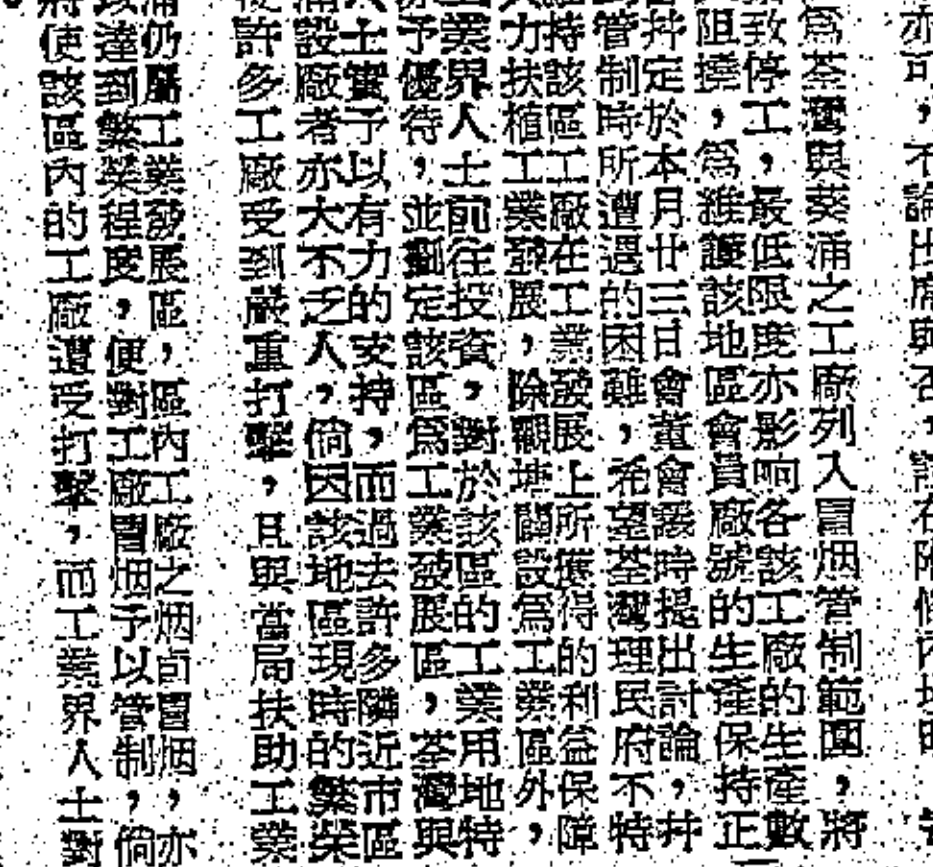 亦可，不論出席與否，
爲荃灣與葵涌之工廠列入冒烟管制範圍，將
致停工，最低限度亦影响各該工廠的生產數
阻撓，爲維護該地區會員廠號的生產保持正
并定於本月廿三日會董會議時提出討論，并
管制時所遭遇的困難，希望荃灣理民府不特
持該區工廠在工業發展上所獲得的利益保障
力扶植工業發展，除觀塘闢設爲工業區外，
業界人士前往投資，對於該區的工業用地特
予優待，並劃定該區爲工業發展區，荃灣與
士實予以有力的支持，而過去許多隣近市區
設廠者亦大不乏人，倘因該地區現時的繁榮
許多工廠受到嚴重打擊，且與當局扶助工業
涌仍屬工業發展區，區內工廠之烟囱冒烟，亦
達到繁榮程度，便對工廠冒烟予以管制，倘
將使該區內的工廠遭受打擊，而工業界人士對